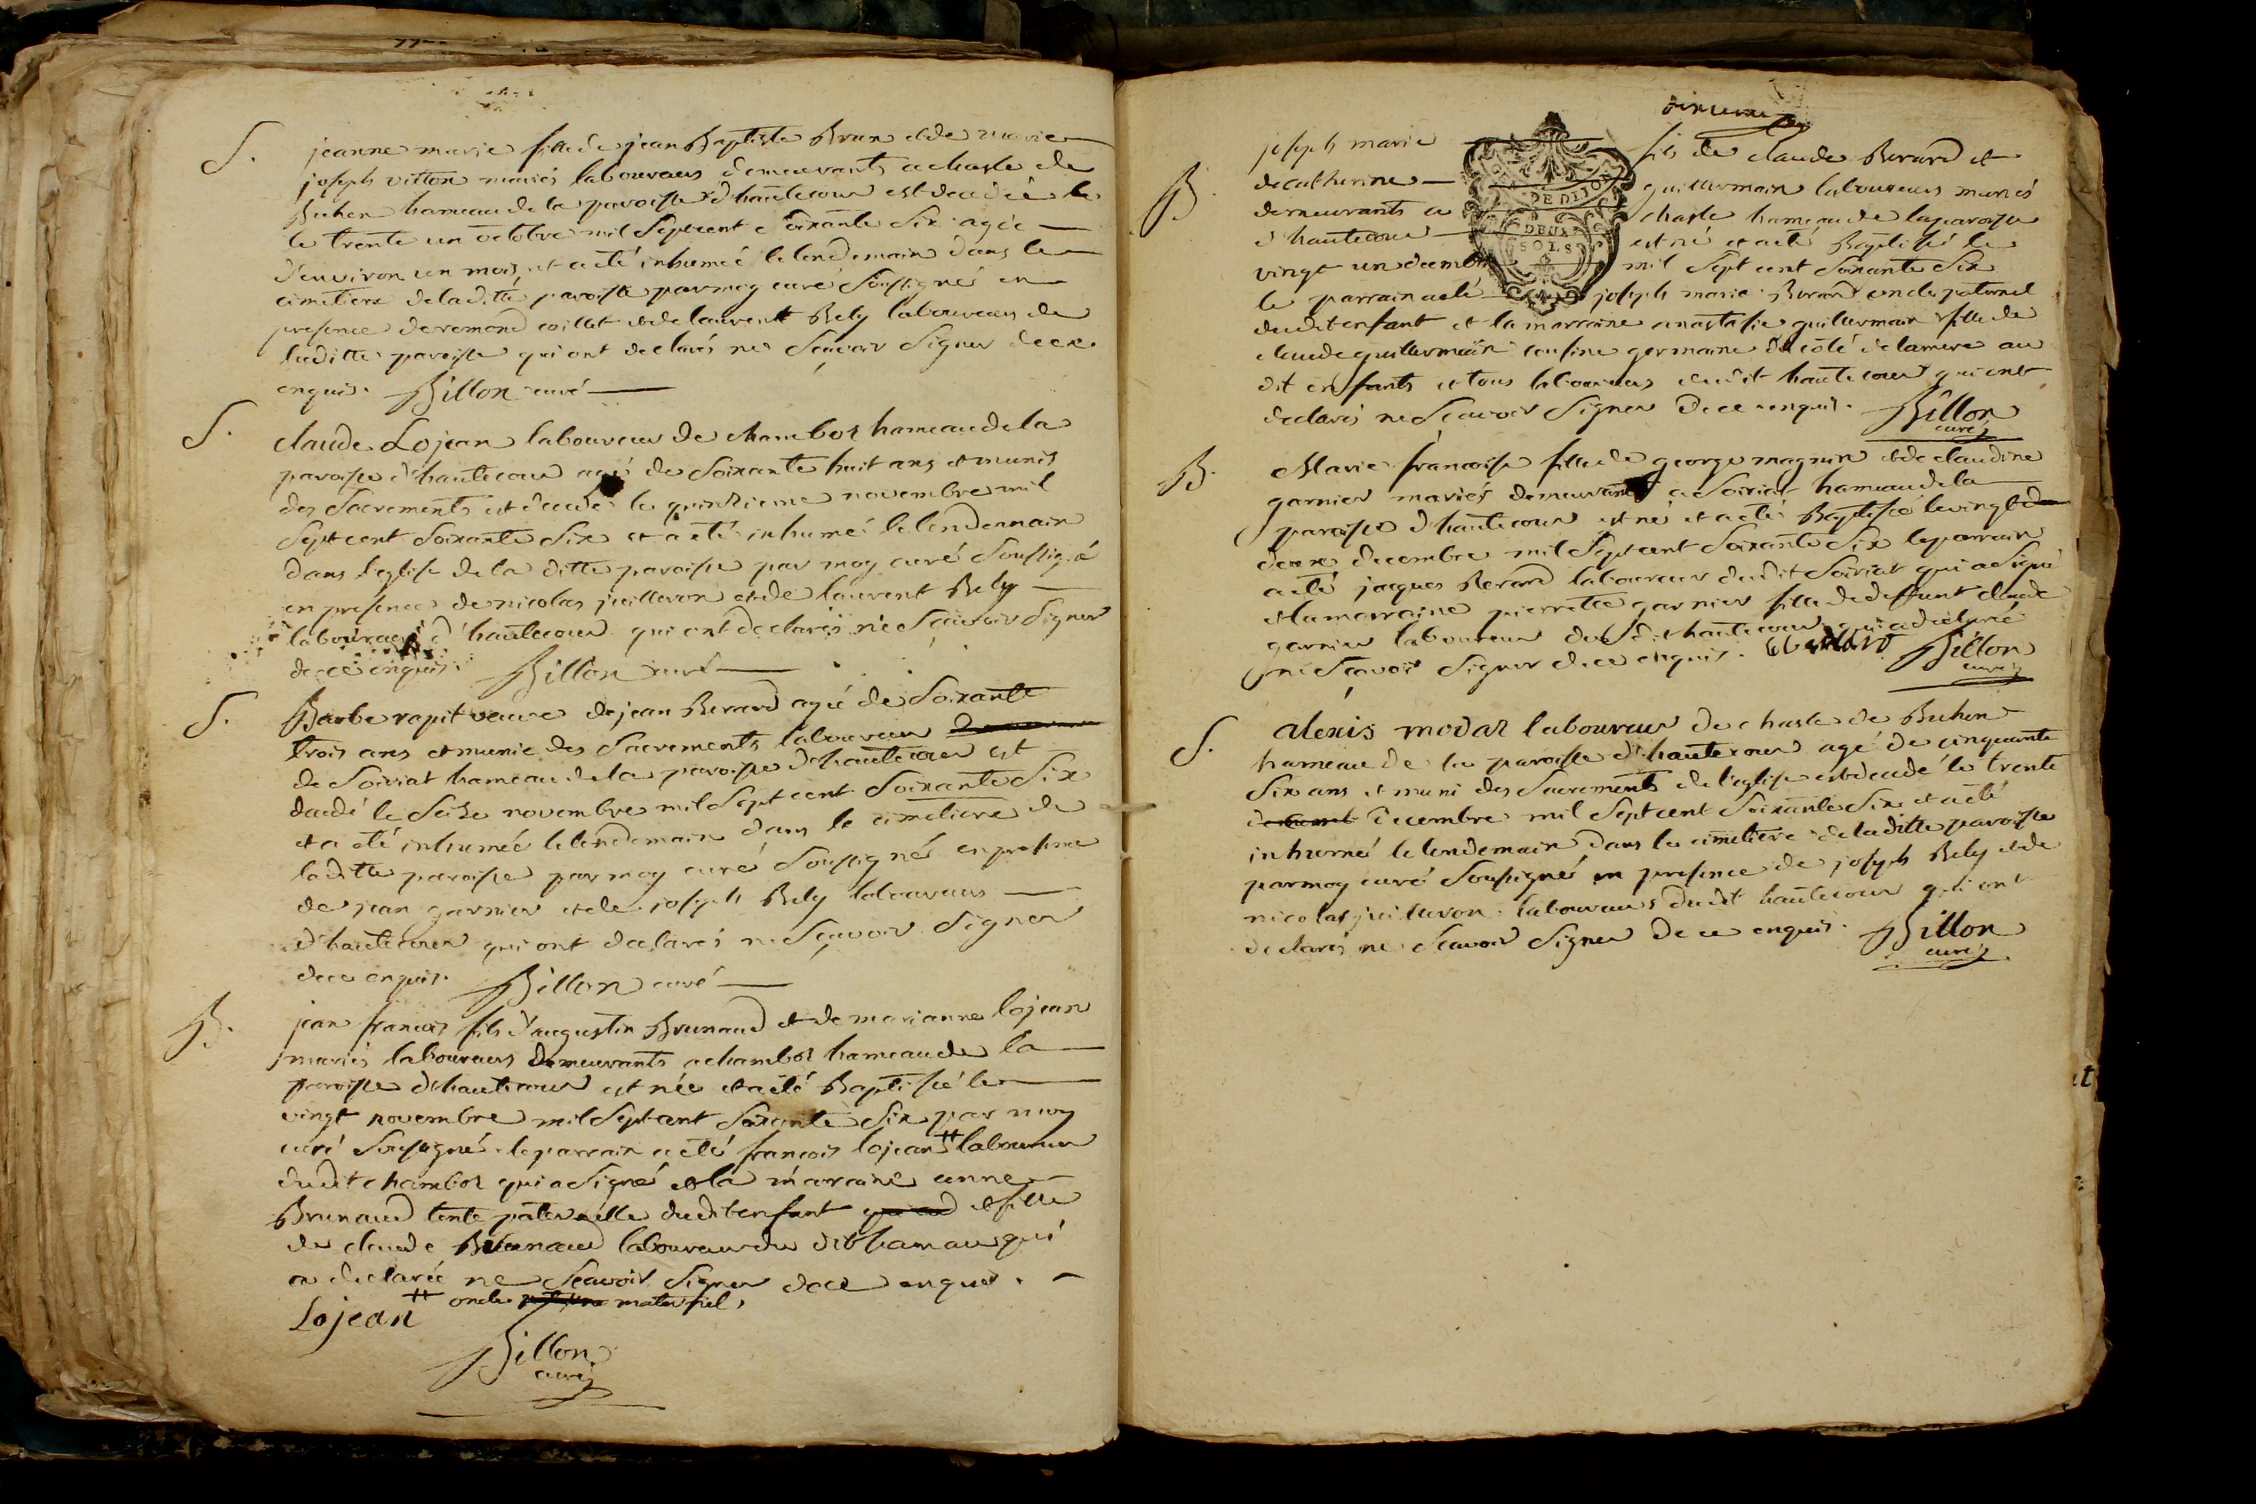 S. jeanne marie fille de jean Baptiste Brun et de marie
joseph vitton mariés laboureurs demeurants a chasle de
Buhen hameau de la paroisse d'hautecour est decedée le
le trente un octobre mil sept cent soixante six agée
d'environ un mois, et a eté inhumée le lendemain dans le
cimetiere de laditte paroisse par moy curé soussignés en
presence de remond coillet et de laurent Bely laboureurs de
laditte paroisse qui ont declarés ne sçavoir signer de ce
enquis. Billon curé
S. claude Lojean laboureur de chambos hameau de la
paroisse d'hautecour agé de soixante huit ans et munis
des sacrements est decedé le quinzieme novembre mil
sept cent soixante six et a eté inhumé le lendemain
dans l'eglise de la ditte paroisse par moy curé soussigné
en presence de nicolas juilleron et de laurent Bely
laboureurs d'hautecour qui ont declarés ne sçavoir signer
de ce enquis. Billon curé
S. Barbe rapit veuve de jean Berard agée de soixante
trois ans et munie des sacrements laboureur
de soiriat hameau de la paroisse d'hautecour est
decedé le seize novembre mil sept cent soixante six
et a eté inhumée le lendemain dans le cimetiere de
laditte paroisse par moy curé soussignés en presence
de jean garnier et de joseph Bely laboureurs
d'hautecour qui ont declarés ne sçavoir signer
de ce enquis. Billon curé
B. jean francois fils d'augustin Brunaud et de marianne lojean
mariés laboureurs demeurants a chambos hameau de la
paroisse d'hautecour est née et a eté Baptisé le
vingt novembre mil sept cent soixante six par moy
curé soussigné. le parrain a eté francois lojean # laboureur
dudit chambos qui a signé et la marraine anne
Brunaud tente paternelle dudit enfant et fille
de claude Brunaud laboureur du dit hameau qui
a declarée ne sçavoir signer de ce enquis.
# oncle maternel.
Lojean
Billon
curé
B. joseph marie fils de claude Berard et
de catherine guillermain laboureurs mariés
demeurants a chasle hameau de la paroisse
d'hautecour est né et a eté Baptisé le
vingt un decembre mil sept cent soixante six
le parrain a eté joseph marie Berard oncle paternel
dudit enfant et la marraine anastasie guillermain fille de
claude guillermain cousine germaine du côté de la mere au
dit enfants et tous laboureurs dudit hautecour qui ont
declarés ne sçavoir signer de ce enquis. Billon
curé
DE DIJON
DEUX
SOLS
B. Marie françoise fille de george magnin et de claudine
garnier mariés demeurants a soiriat hameau de la
paroisse d'hautecour est né et a eté Baptisée le vingt
deux decembre mil sept cent soixante six le parrain
a eté jacques Berard laboureur dudit soiriat qui a signé
et la marraine pierrette garnier fille de deffunt claude
garnier laboureur du dit hautecour qui a declaré
ne sçavoir signer de ce enquis. Billon
curé
S. alexis modas laboureur de chasle de Buhen
hameau de la paroisse d'hautecour agé de cinquante
six ans et muni des sacrements de l'eglise est decedé le trente
decembre mil sept cent soixante six et a eté
inhumé le lendemain dans le cimetiere de laditte paroisse
par moy curé soussignés en presence de joseph Bely et de
nicolas juilleron laboureurs dudit hautecour qui ont
declarés ne sçavoir signer de ce enquis. Billon
curé